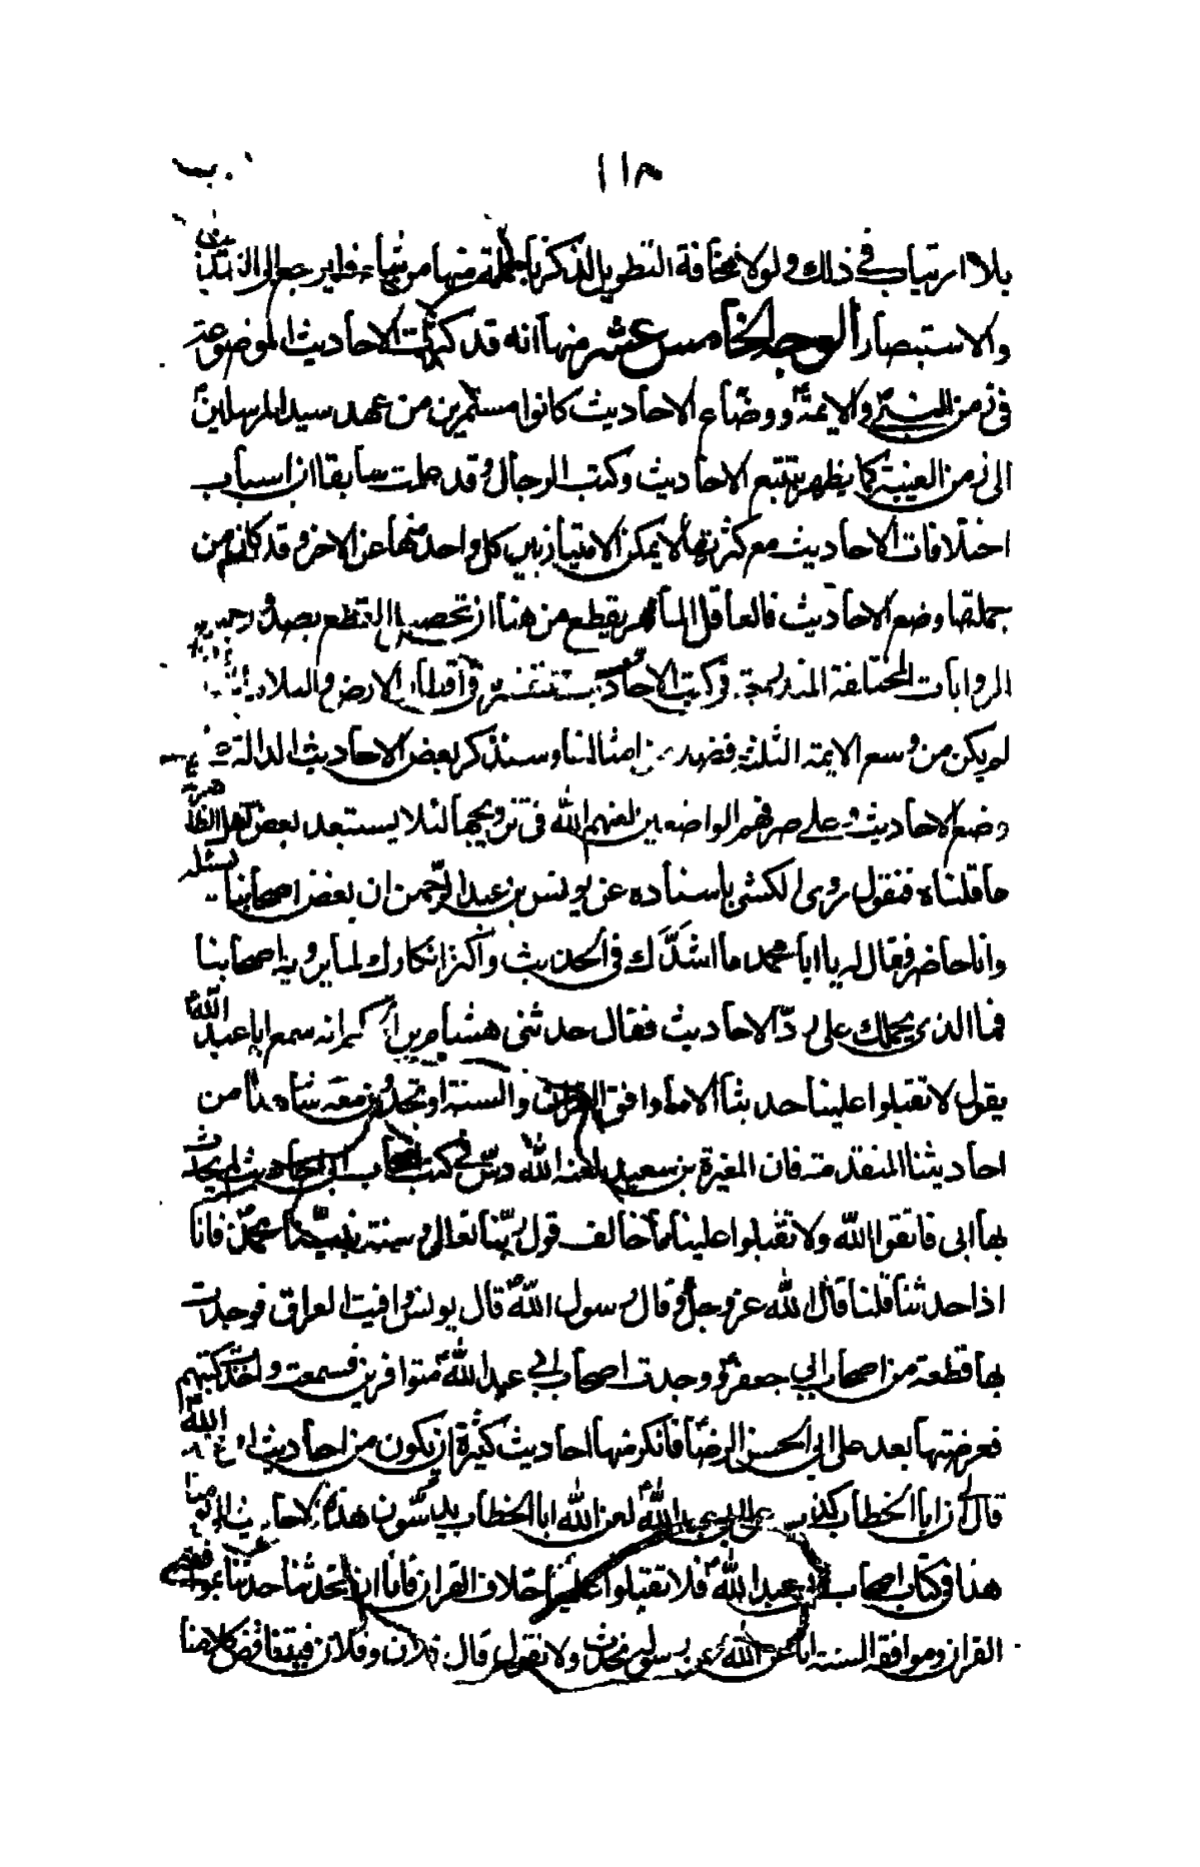 ١١٨
بلا ارتياب في ذلك ولولا مخافة التطويل لذكرنا جملة منها مرتبا فليرجع إلى الذكى
والاستبصار الوجه الخامس عشر منها انه قد كثرت الاحاديث الموضوعة
في زمن النبي ص والايمة ع ووضاع الاحاديث كانوا مستمرين من عهد سيد المرسلين ص
الى زمن الغيبة كما يظهر بتتبع الاحاديث وكتب الرجال وقد علمت سابقا ان اسباب
اختلافات الاحاديث مع كثرتها لا يمكن الامتياز بين كل واحد منها عن الاخر وقد كان من
جملتها وضع الاحاديث فالعاقل الماهر يقطع من هنا ان تحصيل القطع بصدور جميع
الروايات المختلفة المندرجة في كتب الاحاديث المنتشرة في اقطار الارض والبلاد
لم يكن من وسع الايمة الثلثة فضلا عن امثالنا وسنذكر بعض الاحاديث الدالة
وضع الاحاديث وعلى صرفهم الواضعين لعنهم الله في ترويجها لئلا يستبعد بعض
ما قلناه فنقول روى الكشي باسناده عن يونس بن عبد الرحمن ان بعض اصحابنا سئله
وانا حاضر فقال له يا ابا محمد ما اشدك في الحديث واكثر انكارك لما يرويه اصحابنا
فما الذي يحملك على رد الاحاديث فقال حدثنى هشام بن الحكم انه سمع ابا عبد الله ع
يقول لا تقبلوا علينا حديثا الا ما وافق القران والسنة او تجدون معه شاهدا من
احاديثنا المتقدمة فان المغيرة بن سعيد لعنه الله دس في كتب اصحاب ابى احاديث لم يحدث
بها ابى فاتقوا الله ولا تقبلوا علينا ما خالف قول ربنا تعالى وسنة نبينا محمد ص فانا
اذا حدثنا قلنا قال الله عز وجل وقال رسول الله ص قال يونس وافيت العراق فوجدت
بها قطعة من اصحاب ابي جعفر ع ووجدت اصحاب ابي عبد الله ع متوافرين فسمعت واخذت كتبهم
فعرضتها بعد على ابي الحسن الرضا ع فانكر منها احاديث كثيرة ان يكون من احاديث ابى عبد الله ع
قال لى ان ابا الخطاب كذب على ابي عبد الله ع لعن الله ابا الخطاب يدسون هذه الاحاديث الى يومنا
هذا في كتاب اصحاب ابي عبد الله ع فلا تقبلوا علينا خلاف القران فانا ان تحدثنا حدثنا بموافقة
القران وموافقة السنة انا عن الله وعن رسوله نحدث ولا نقول قال فلان وفلان فيتناقض كلامنا